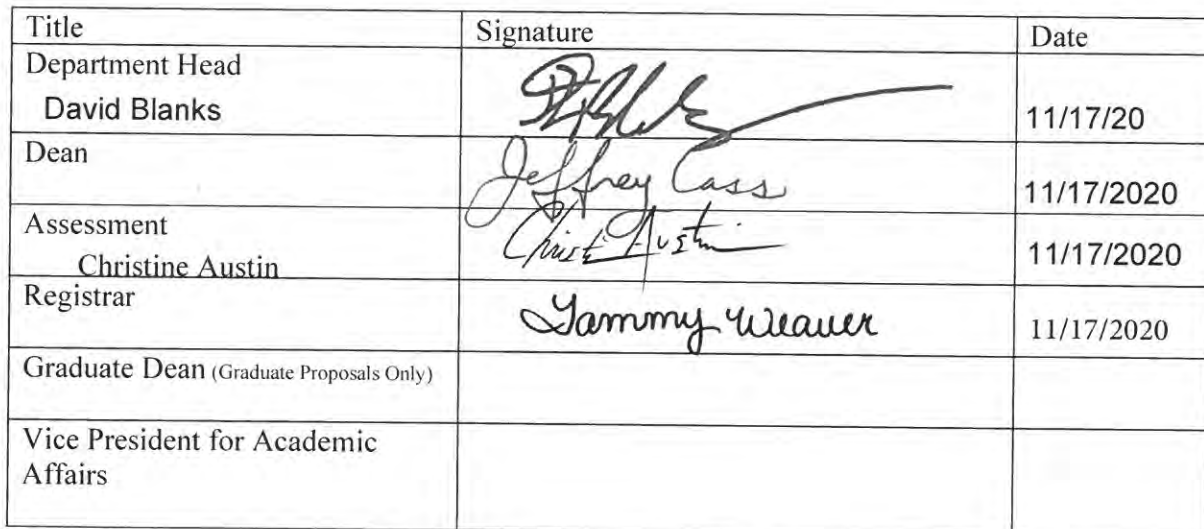 Title Signature Date
Department Head
David Blanks 11/17/20
Dean Jeffrey Cass 11/17/2020
Assessment Christine Austin 11/17/2020
Christine Austin
Registrar Tammy Weaver 11/17/2020
Graduate Dean (Graduate Proposals Only)
Vice President for Academic
Affairs